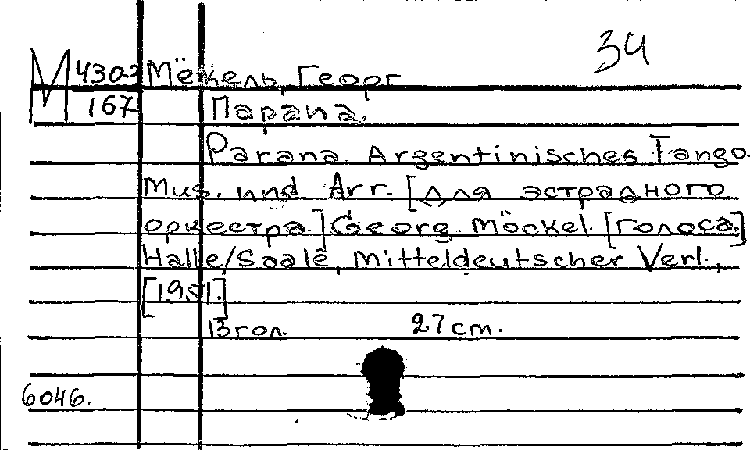 34
М 4302 Мёкель, Георг
167 Парана.
Parana. Argentinisches Tango.
Mus. und Arr. [для эстрадного
оркестра] Georg Möckel. [голоса.]
Halle/Saale, Mitteldeutscher Verl.,
[1951]
13 гол. 27 cm.
6046.